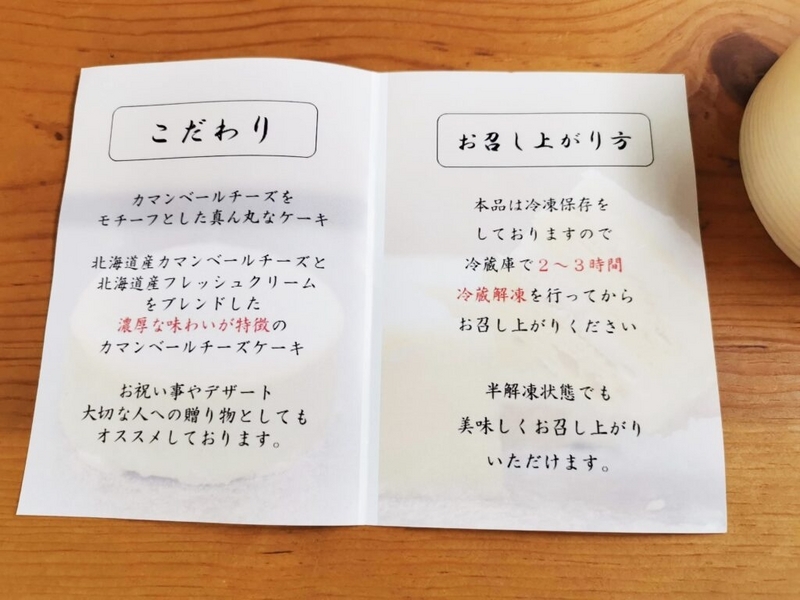 こだわり
カマンベールチーズを
モチーフとした真ん丸なケーキ
北海道産カマンベールチーズと
北海道産フレッシュクリーム
をブレンドした
濃厚な味わいが特徴の
カマンベールチーズケーキ
お祝い事やデザート
大切な人への贈り物としても
オススメしております。
お召し上がり方
本品は冷凍保存を
しておりますので
冷蔵庫で2～3時間
冷蔵解凍を行ってから
お召し上がりください
半解凍状態でも
美味しくお召し上がり
いただけます。